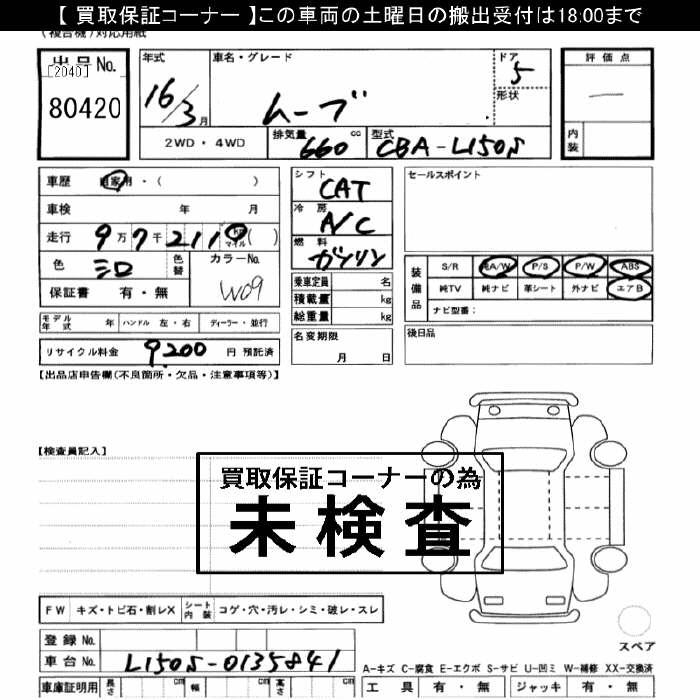 【 買取保証コーナー 】この車両の土曜日の搬出受付は18:00まで
(複合機)対応用紙
出品No.
[2040]
80420
年式
16/3月
車名・グレード
ムーブ
ドア
5
形状
評価点
—
内装
2WD・4WD
排気量
660 cc
型式
CBA-L150S
車歴 自家用・( )
車検 年 月
走行 9万7千2110 マイル ( )
色
シロ
色替
カラーNo.
W09
保証書 有・無
シフト
CAT
冷房
A/C
燃料
ガソリン
乗車定員 名
積載量 kg
総重量 kg
セールスポイント
装備品
S/R 純A/W P/S P/W ABS
純TV 純ナビ 革シート 外ナビ エアB
ナビ型番:
モデル年式 年 ハンドル 左・右 ディーラー・並行
名変期限
月 日
後日品
リサイクル料金 9,200 円 預託済
【出品店申告欄(不良箇所・欠品・注意事項等)】
【検査員記入】
買取保証コーナーの為
未検査
FW キズ・トビ石・割レX
シート内装 コゲ・穴・汚レ・シミ・破レ・スレ
スペア
登録No.
車台No. L150S-0135841
A-キズ C-腐食 E-エクボ S-サビ U-凹ミ W-補修 XX-交換済
車庫証明用 長さ cm 幅 cm 高さ cm
工具 有・無 ジャッキ 有・無